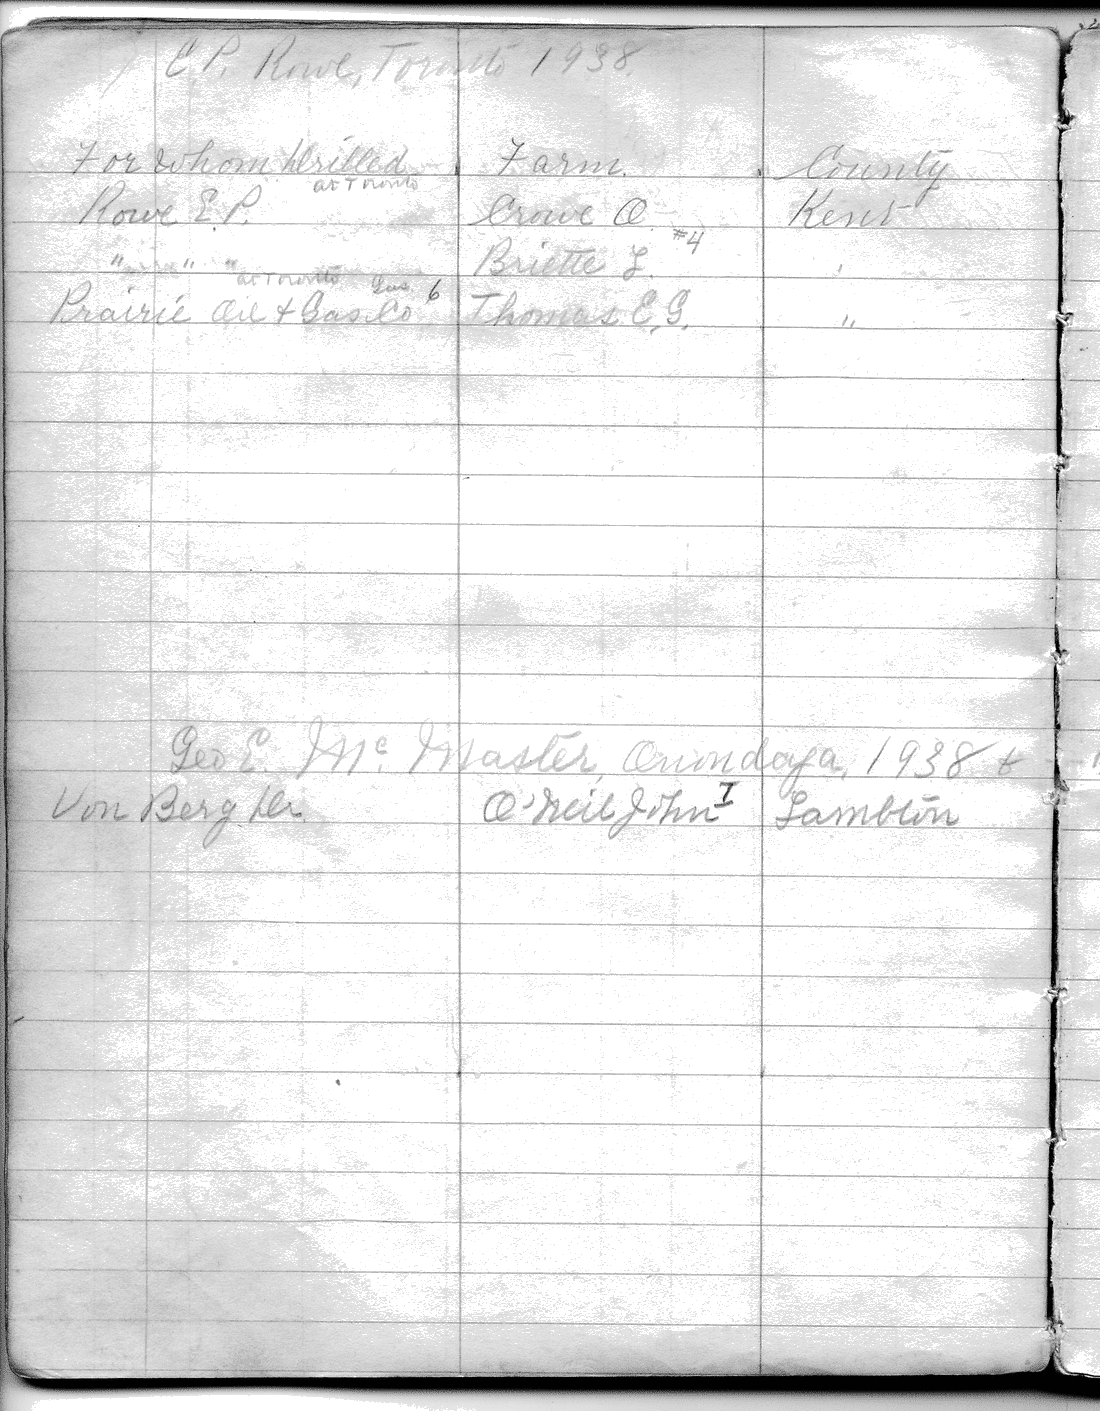 E.P. Rowe, Toronto 1938.
For Whom Drilled Farm. County
at Toronto
Rowe E.P. Crowe O. Kent
#4
" " " Briette L. "
at Toronto Gas 6
Prairie Oil & Gas Co Thomas E.G. "
Geo E. Mc Master, Onondaga, 1938
Von Berg Dr. O'Neil John I Lambton